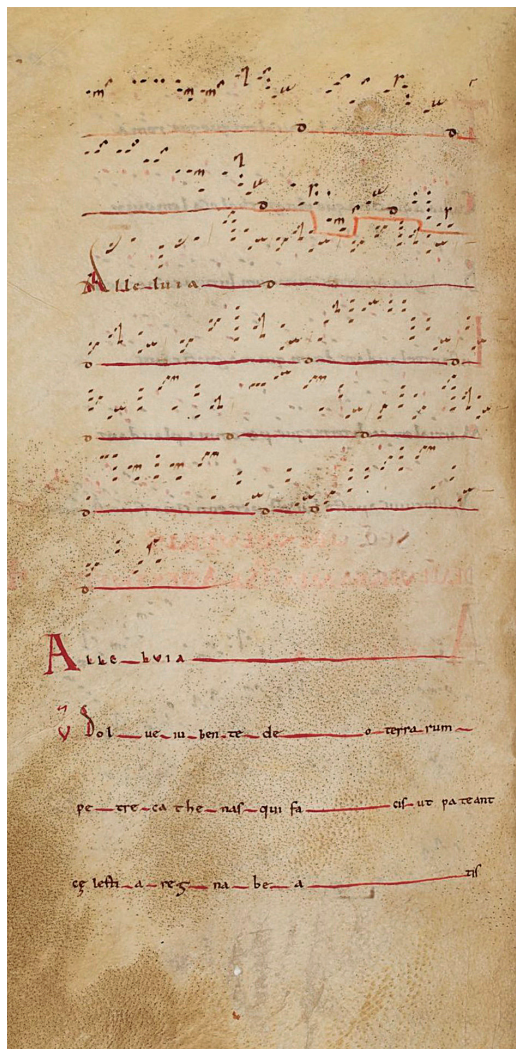 D D
D D
Alleluia D
D D D
D D D
D D D
D
ALLELUIA
V Sol ue iu ben te de o terra rum
pe tre ca the nas qui fa cis ut pa teant
cę lesti a reg na be a tis